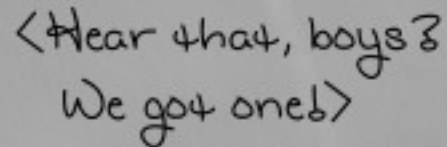 <Hear that, boys?
We got one!>